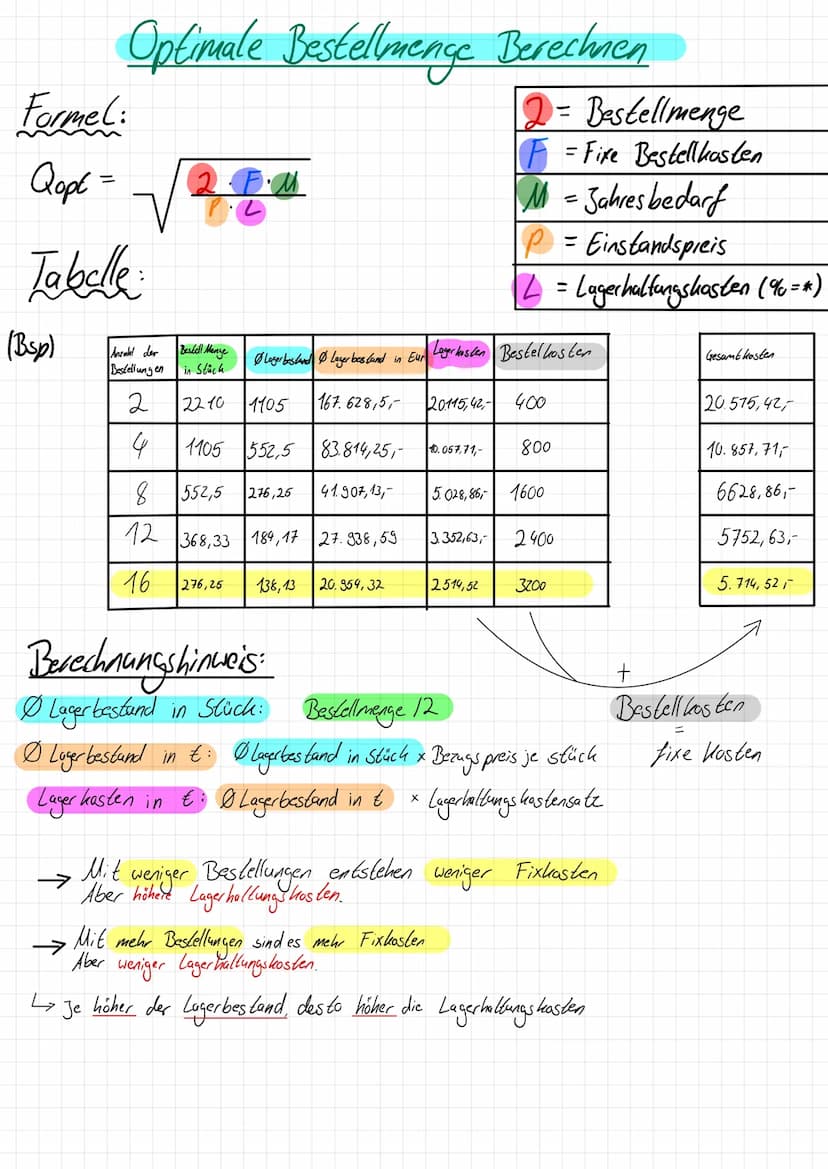 Optimale Bestellmenge Berechnen
Formel:
Qopt = √ 2 · F · M
P · L
2 = Bestellmenge
F = Fixe Bestellkosten
M = Jahresbedarf
P = Einstandspreis
L = Lagerhaltungskosten (% = *)
Tabelle:
(Bsp)
Anzahl der Bestellungen | Bestell Menge in Stück | Ø Lagerbestand | Ø Lagerbestand in Eur | Lagerkosten | Bestellkosten | Gesamtkosten
2 | 2210 | 1105 | 167.628,5,- | 20115,42,- | 400 | 20.515,42,-
4 | 1105 | 552,5 | 83.814,25,- | 10.057,71,- | 800 | 10.857,71,-
8 | 552,5 | 276,25 | 41.907,13,- | 5.028,86,- | 1600 | 6628,86,-
12 | 368,33 | 184,17 | 27.938,59 | 3.352,63,- | 2400 | 5752,63,-
16 | 276,25 | 138,13 | 20.954,32 | 2.514,52 | 3200 | 5.714,52,-
+
Berechnungshinweis:
Ø Lagerbestand in Stück: Bestellmenge / 2
Bestellkosten
=
fixe Kosten
Ø Lagerbestand in €: Ø Lagerbestand in Stück x Bezugspreis je stück
Lagerkosten in €: Ø Lagerbestand in € x Lagerhaltungskostensatz
→ Mit weniger Bestellungen entstehen weniger Fixkosten
Aber höhere Lagerhaltungskosten.
→ Mit mehr Bestellungen sind es mehr Fixkosten
Aber weniger Lagerhaltungskosten.
↳ Je höher der Lagerbestand, desto höher die Lagerhaltungskosten